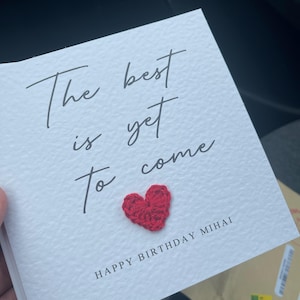 The best
is yet
To come
HAPPY BIRTHDAY MIHAI